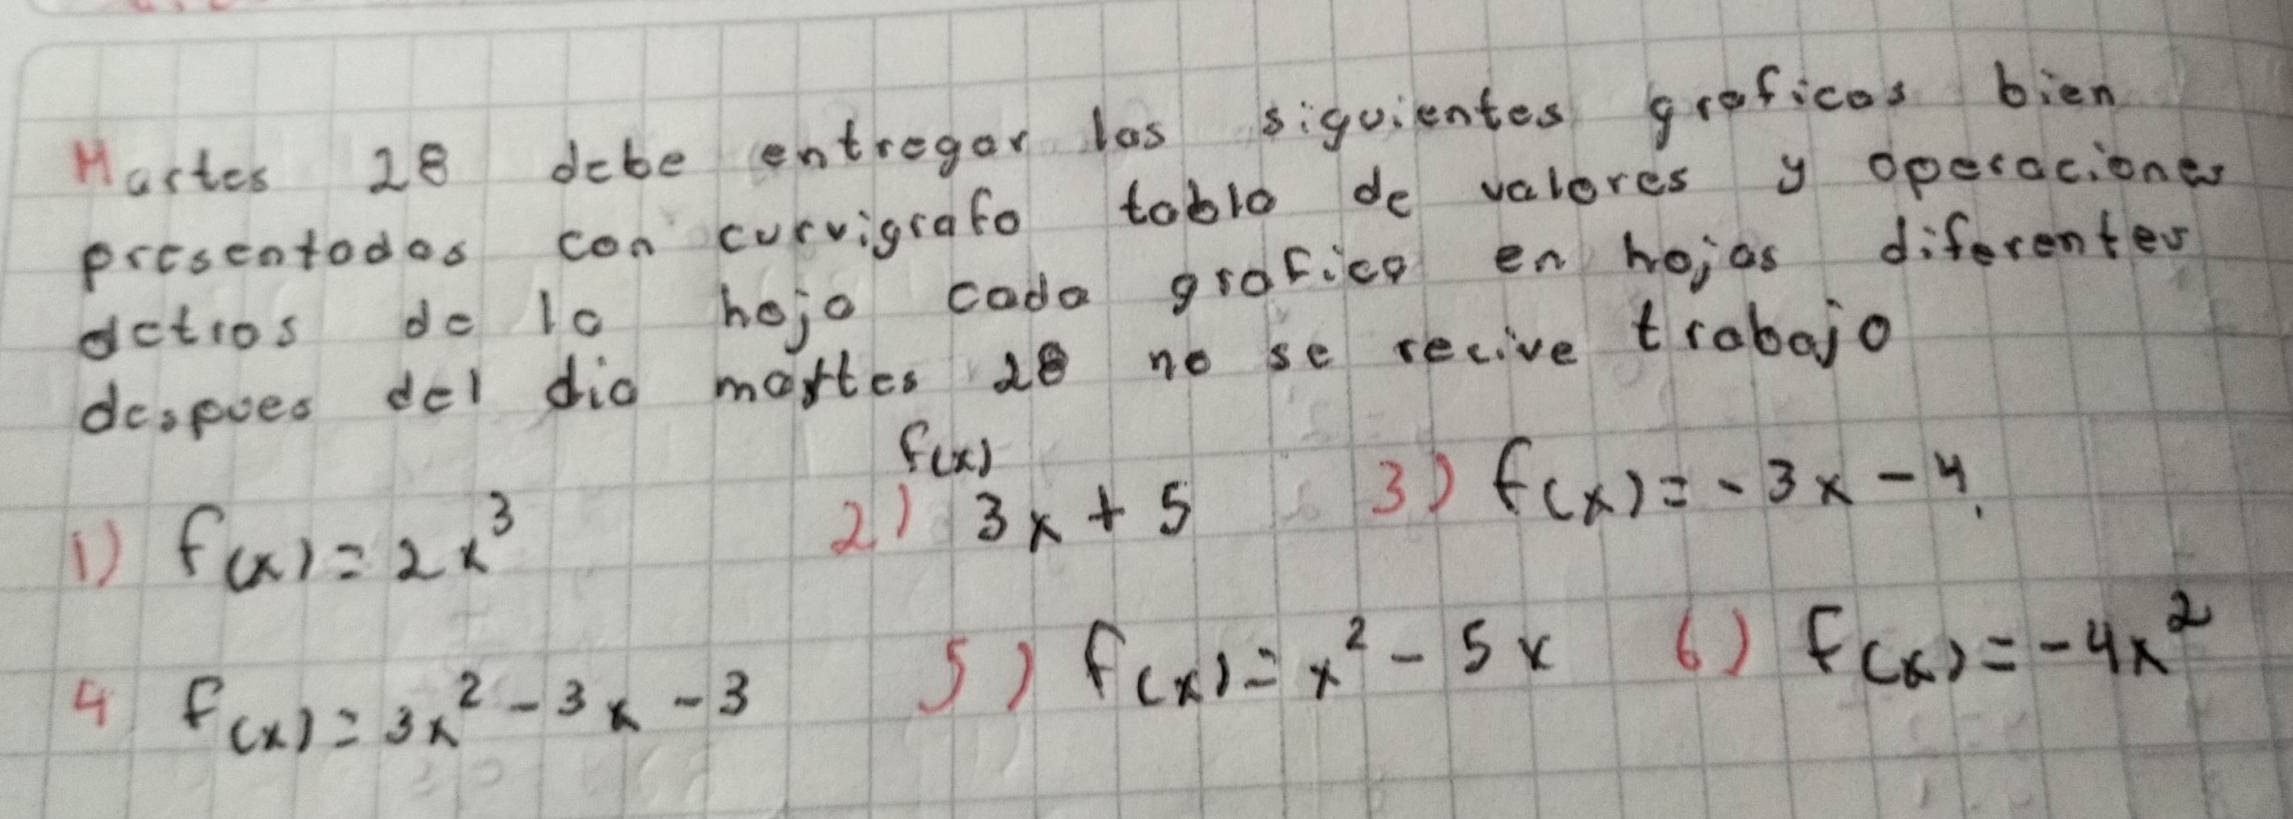 Martes 28 debe entregar las siguientes graficas bien
presentadas con curvigrafo tabla de valores y operaciones
detras de la hoja cada grafica en hojas diferentes
despues del dia martes 28 no se recive trabajo
1) f(x) = 2x³ 2) f(x) 3x + 5 3) f(x) = -3x - 4.
4 f(x) = 3x² - 3x - 3 5) f(x) = x² - 5x 6) f(x) = -4x²